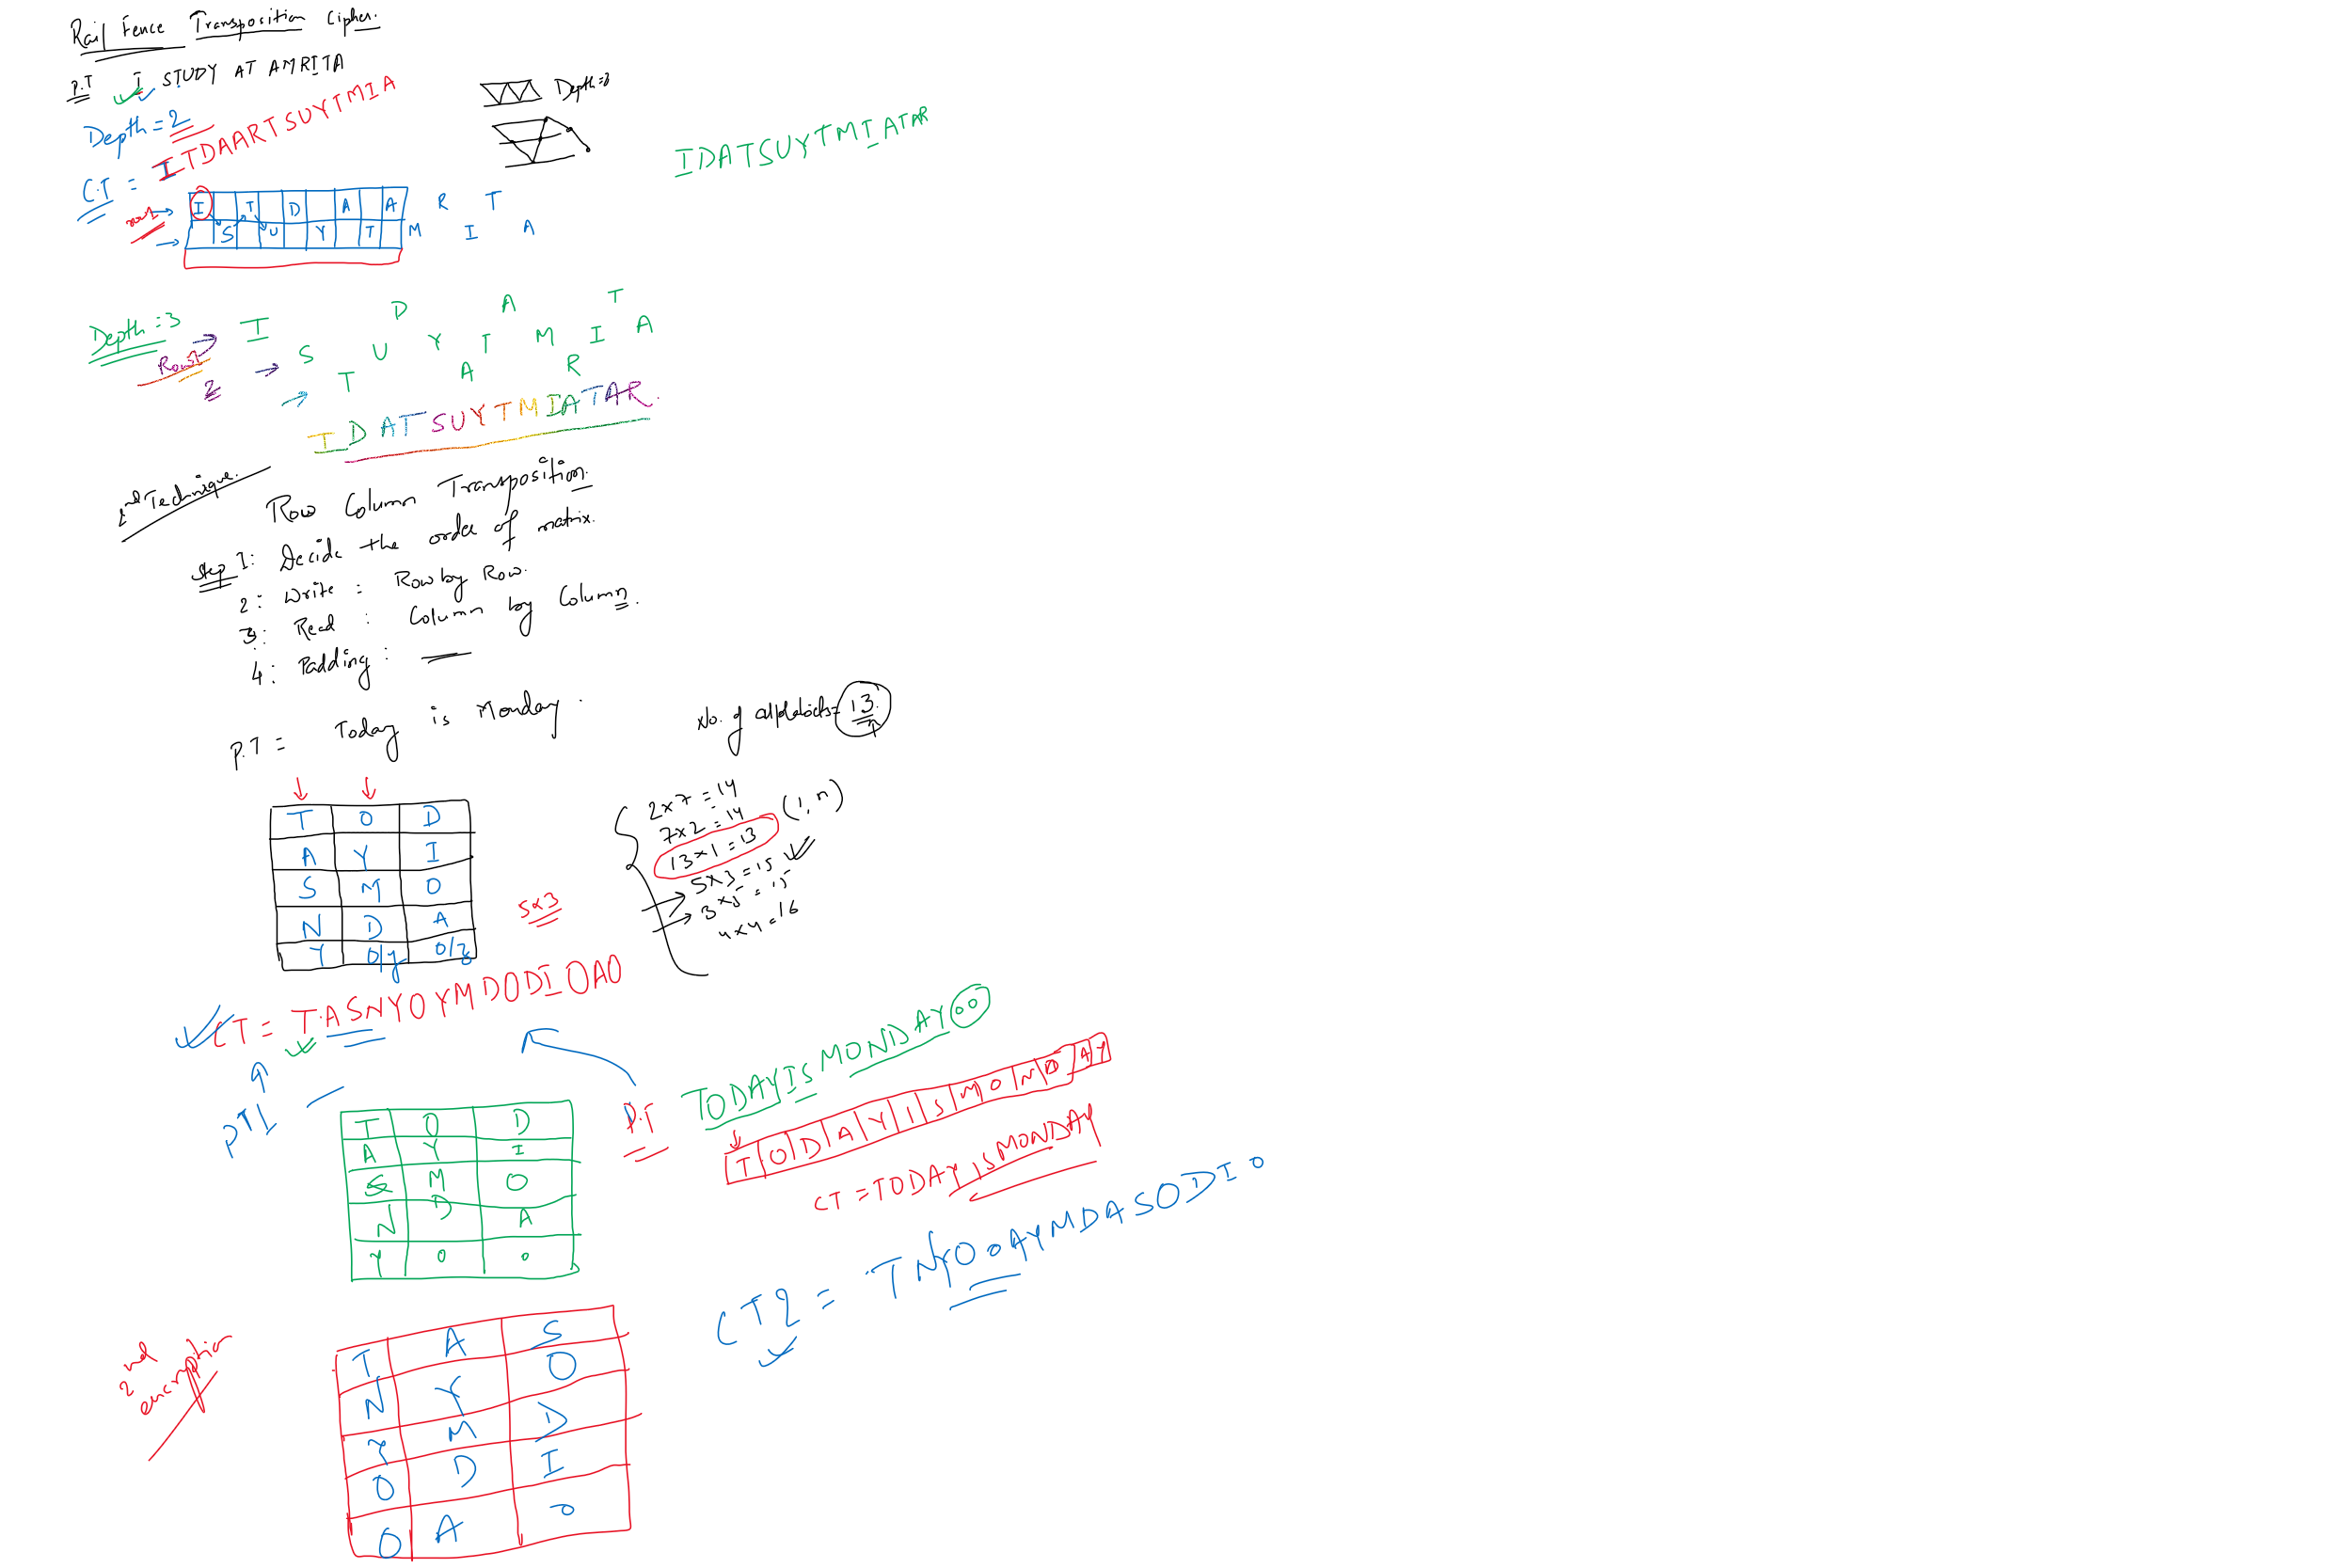 Rail Fence Transposition Cipher.
P.T I STUDY AT AMRITA
Depth = 2
Depth = 3
CT = ITDAARTSUYTMIA
IDATSUYTMIATAR
row1 → I T D A A R T
→ S U Y T M I A
Depth = 3
Row1 → I D A T
2 → S U Y T M I A
→ T A R
IDATSUYTMIATAR.
2nd Technique.
Row Column Transposition.
Step 1: Decide the order of matrix.
2: Write : Row by Row.
3: Read : Column by Column.
4: Padding :
P.T = Today is Monday.
No. of alphabets = 13.
T O D
A Y I
S M O
N D A
Y 0/y 0/z
5x3
2x7 = 14
7x2 = 14
(1, n)
13x1 = 13
5x3 = 15
3x5 = 15
4x4 = 16
CT = TASNYOYMDODIOAO
PT1
T O D
A Y I
S M O
N D A
Y 0 0
P.T TODAYISMONDAY00
T O D A Y I S M O N D A Y
CT = TODAYISMONDAY
CT2 = TNYOOAYMDASODIO
2nd encryption
T A S
N Y O
Y M D
O D I
O A O